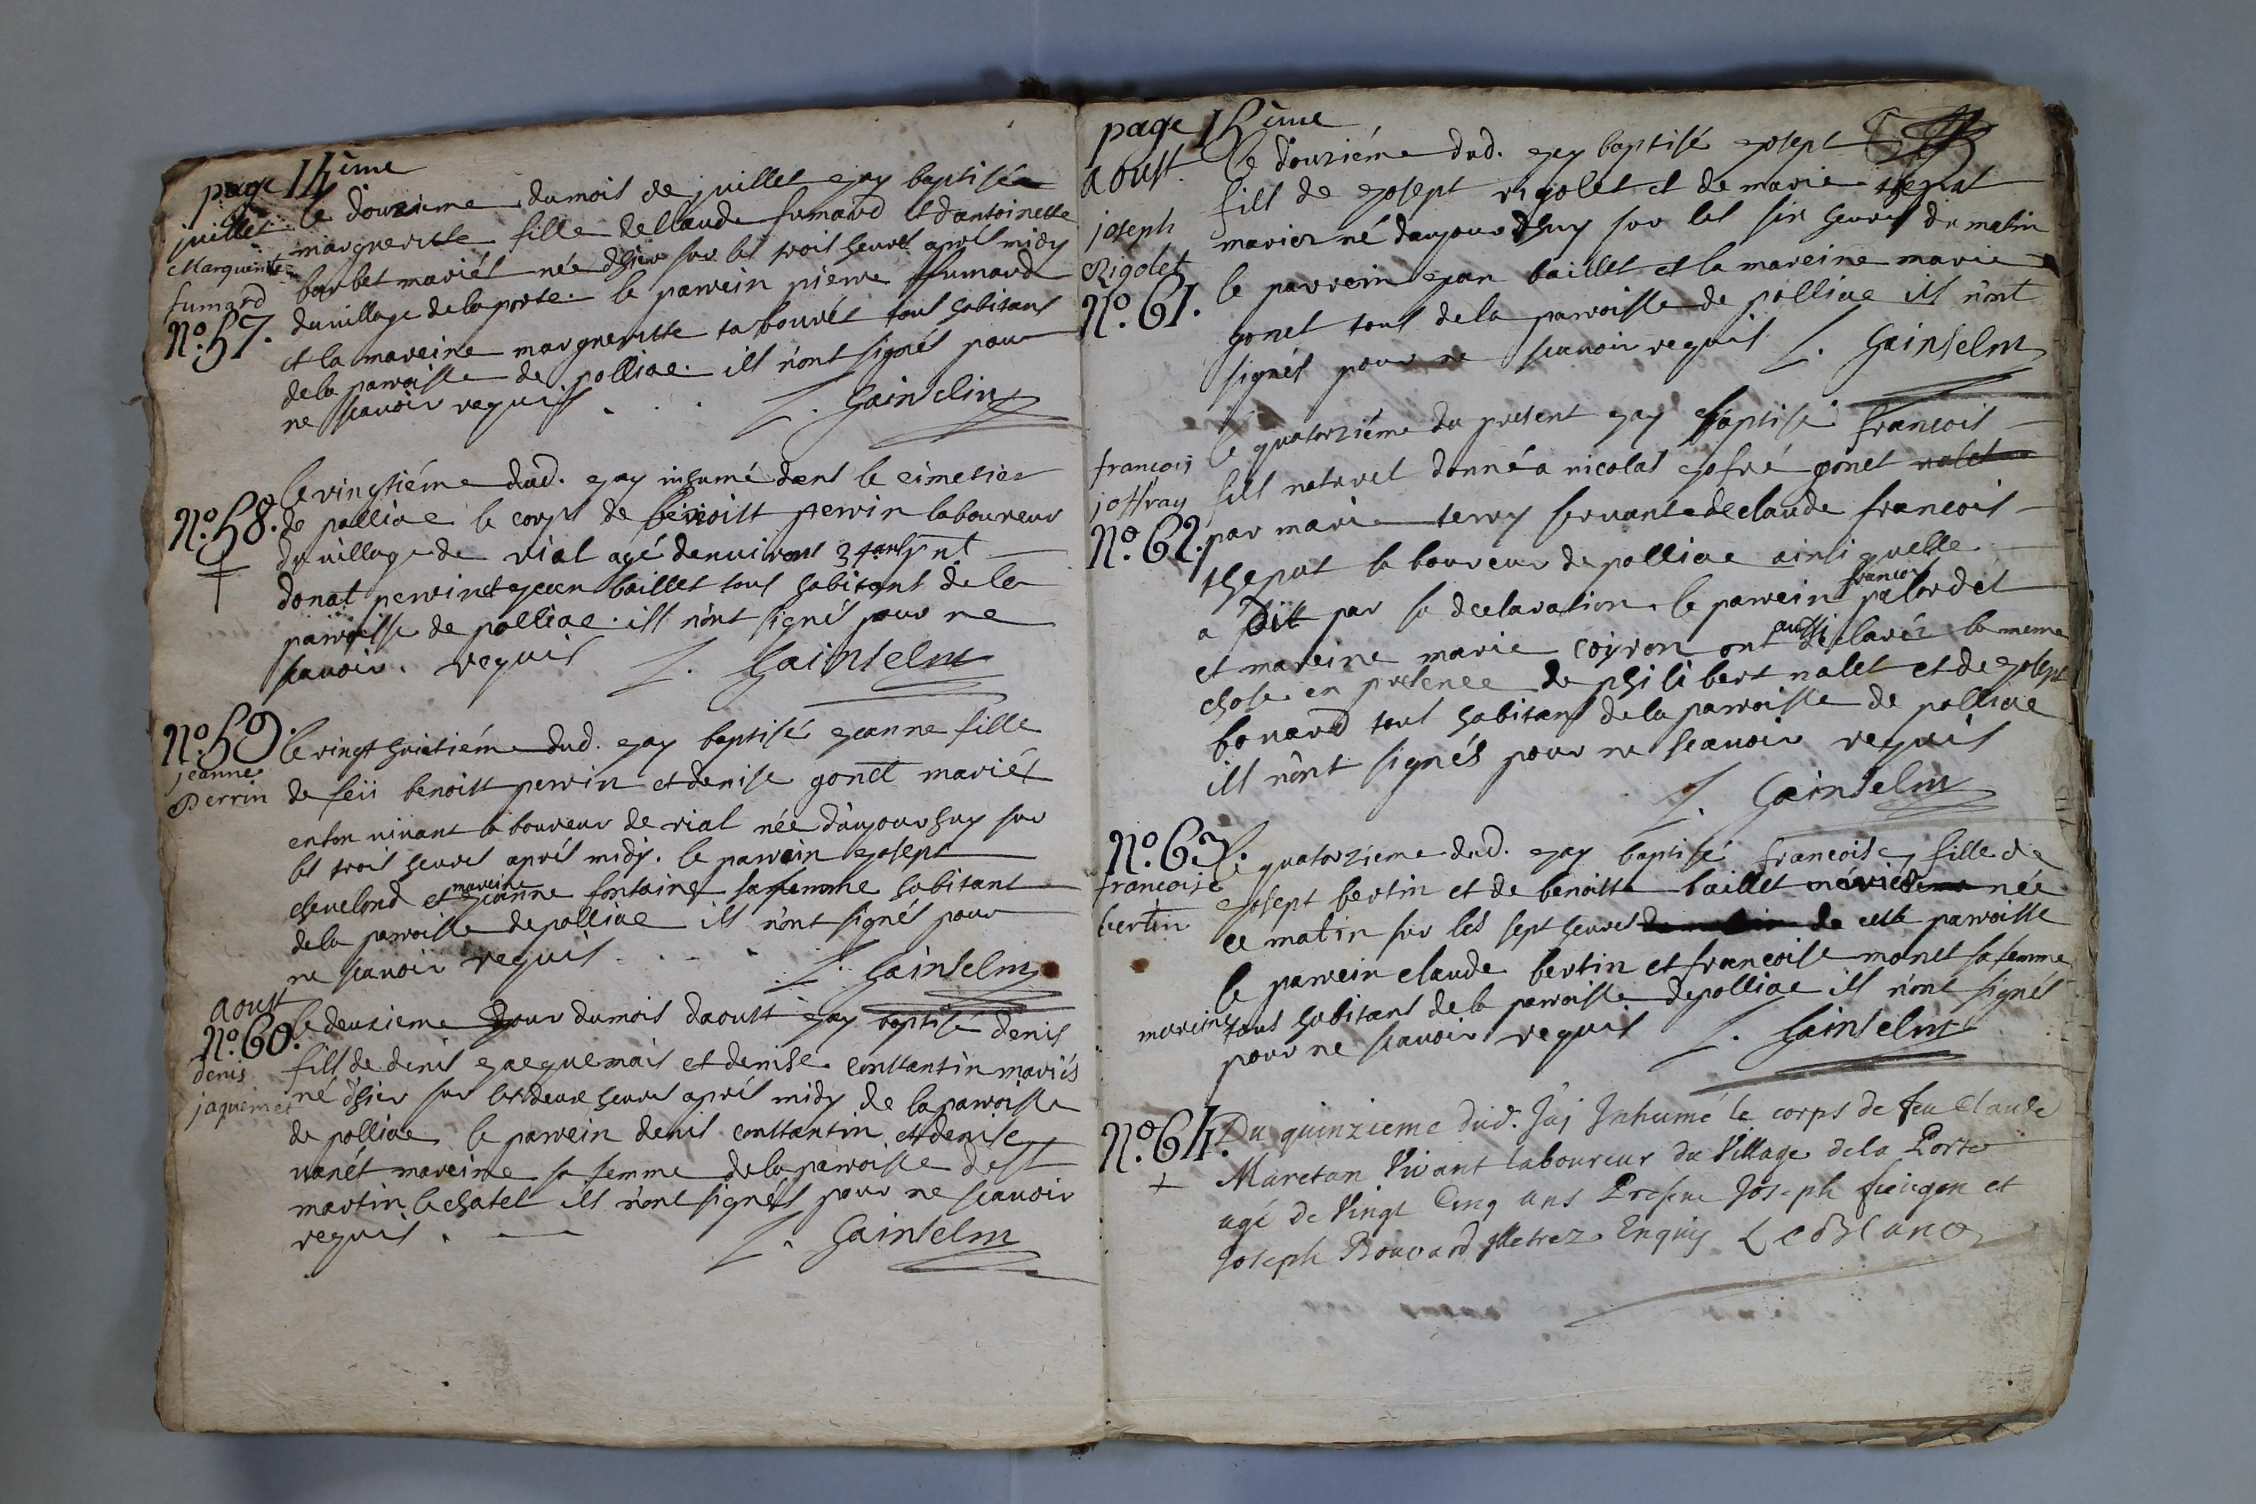 page 14ème
juillet le douzieme du mois de juillet jay baptisée
Marguerite margueritte fille de Claude fumard et dantoinette
fumard barbet mariés née dhier sur les trois heures aprés midy
No. 57. du village de la porte. le parrein pierre ffumard
et la mareine margueritte tabouret tous habitans
de la parroisse de polliac. ils n'ont signés pour
ne scavoir requis . . . L. Gainselm
le vingtiéme dud. jay inhumé dans le cimetier
No. 58. de polliac le corps de benoist perrin laboureur
du village de rial agé denvirons 34 ans pnt
donat perrin et jean baillet tous habitant de la
parroisse de polliac. ils n'ont signé pour ne
scavoir. requis L. Gainselm
No. 59. le vingt huitiéme dud. jay baptisé jeanne fille
jeanne Perrin de feü benoist perrin et denise gonet mariés
en son vivant laboureur de rial née daujourhuy sur
les trois heures aprés midy. le parrein joseph
chevelond et mareine jeanne fontaine sa femme habitant
de la parroisse de polliac ils n'ont signés pour
ne scavoir requis . . . L. Gainselm
aoust
No. 60. le deuxieme jour du mois daoust jay baptisé denis
denis fils de denis jacquemais et denise constantin mariés
jaquemet né dhier sur les deux heures aprés midy de la parroisse
de polliac le parrein denis constantin et denise
vanét mareine sa femme de la parroisse de st
martin le chatel ils n'ont signés pour ne scavoir
requis . L. Gainselm
page 15ème
aoust. le douziéme dud. jay baptisé joseph
joseph fils de joseph rigolet et de marie theput
Rigolet mariez né daujourdhuy sur les six heures du matin
No. 61. le parrein jean baillet et la mareine marie
gonet tous de la parroisse de polliac ils n'ont
signés pour ne scavoir requis L. Gainselm
le quatorziéme du present jay baptisé francois
francois joffray fils naturel donné a nicolas jofré gonet valet
No. 62. par marie terry servante de claude francois
theput laboureur de polliac ainsi quelle
a dit par sa declaration. le parrein francois palordet
et mareine marie coyron ont aussi declaréz la meme
chose en presence de philibert nallet et de joseph
bonard tous habitans de la parroisse de polliac
ils n'ont signés pour ne scavoir requis
L. Gainselm
No. 63. le quatorzieme dud. jay baptisé francoise, fille de
francoise joseph bertin et de benoitte baillet mariés née
bertin ce matin sur les sept heures de cette parroisse
le parrein claude bertin et francoise monet sa femme
mareine tous habitans de la parroisse de polliac ils n'ont signés
pour ne scavoir requis L. Gainselm
No. 64. Du quinzieme dud. J'ai Inhumé le corps de feu Claude
Maretan Vivant laboureur du Village de la Porte
agé de Vingt Cinq ans Presens Joseph et
Joseph Bouvard Illetrez Enquis LeBlanc